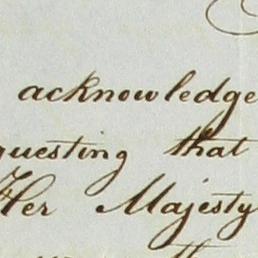 acknowledge
questing that
Her Majesty